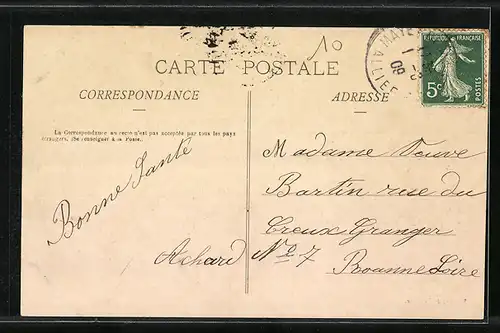 10
CARTE POSTALE
CORRESPONDANCE
ADRESSE
RÉPUBLIQUE FRANÇAISE
5c
POSTES
ALLIER
09
La Correspondance au recto n'est pas acceptée par tous les pays
étrangers. (Se renseigner à la Poste).
Bonne Santé
Achard
Madame Veuve
Bartin rue du
Creux Granger
No 7
Roanne Loire